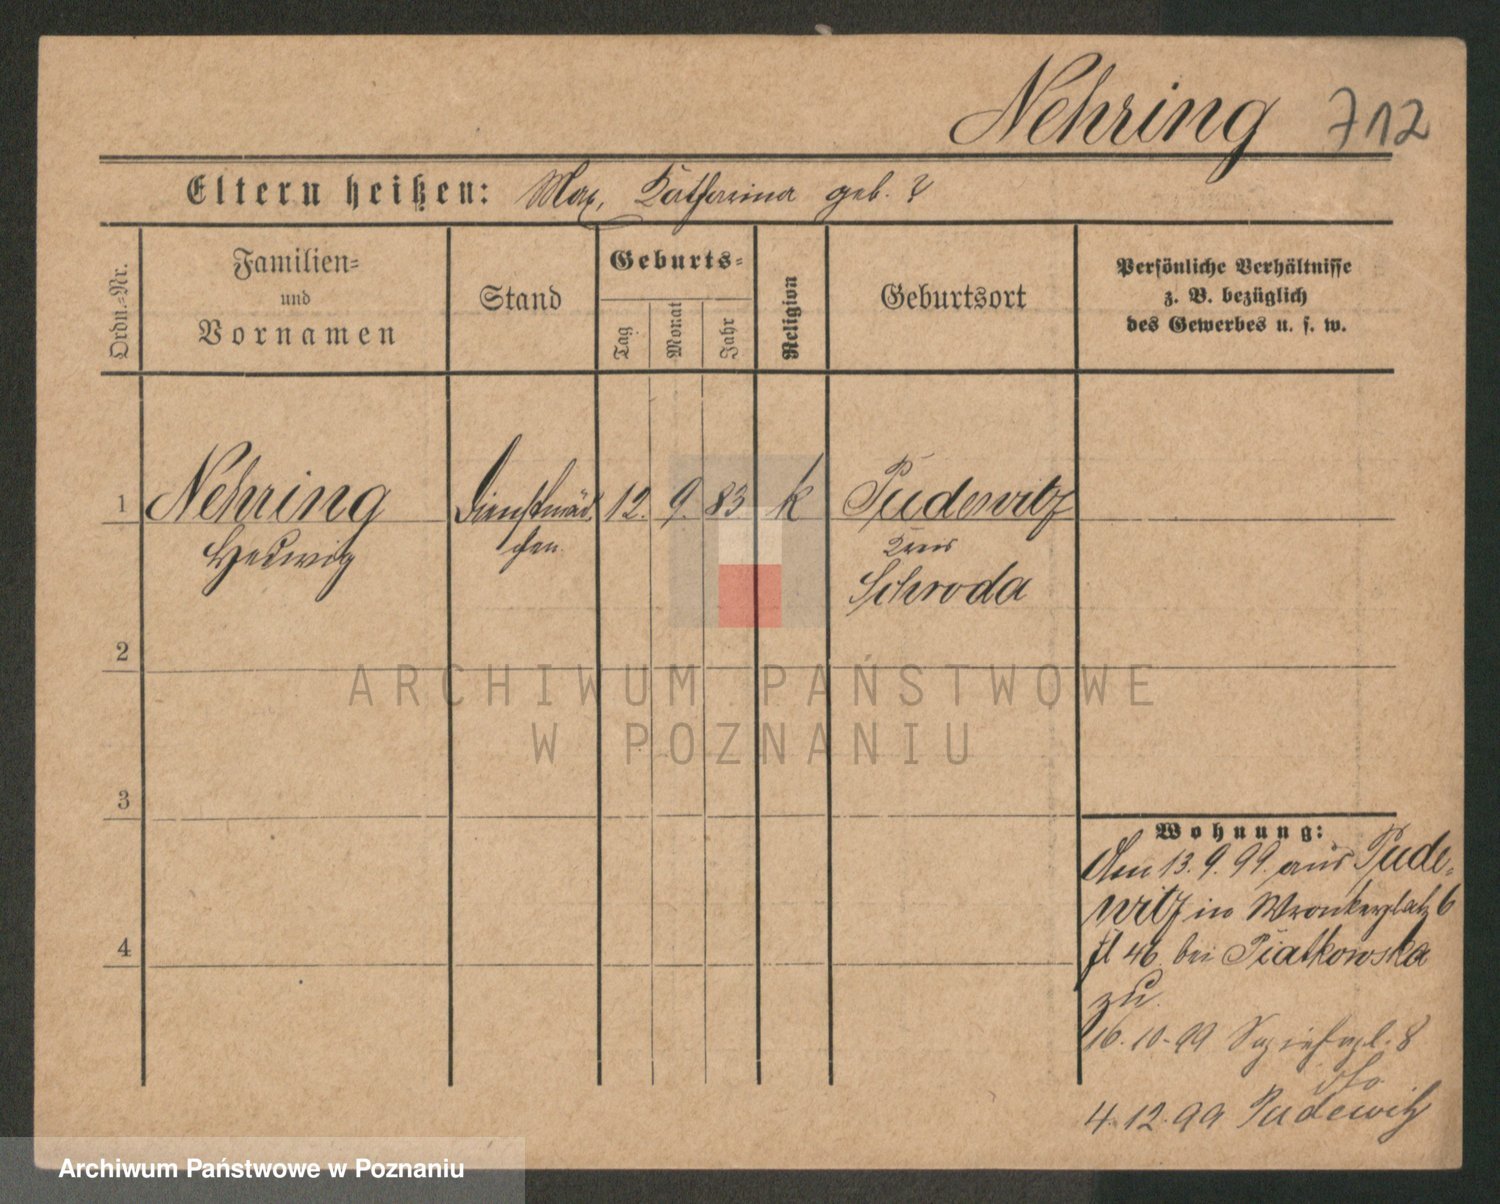 Nehring 712
Eltern heißen: Max, Katharina geb. ?
Ordn.-Nr.
Familien-
und
Vornamen
Stand
Geburts-
Tag
Monat
Jahr
Religion
Geburtsort
Persönliche Verhältnisse
z. B. bezüglich
des Gewerbes u. s. w.
1 Nehring Dienstmäd- 12. 9. 83 k Pudewitz
Hedwig chen Kreis
Schroda
2
ARCHIWUM PAŃSTWOWE
W POZNANIU
3
Wohnung:
Am 13. 9. 99. aus Pude-
witz in Wronkerplatz 6
fl 46 bei Piatkowska
zu.
4
16. 10. 99 Sapiehapl. 8
dto
4. 12. 99 Pudewitz
Archiwum Państwowe w Poznaniu